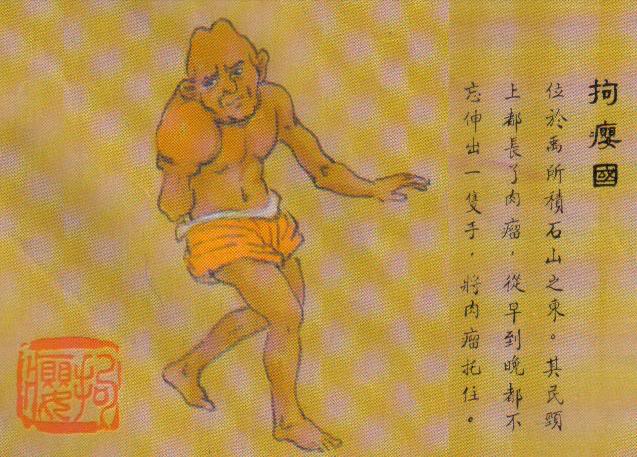 拘瘿國
位於禹所積石山之東。其民頸
上都長了肉瘤，從早到晚都不
忘伸出一隻手，將肉瘤托住。
拘瘿